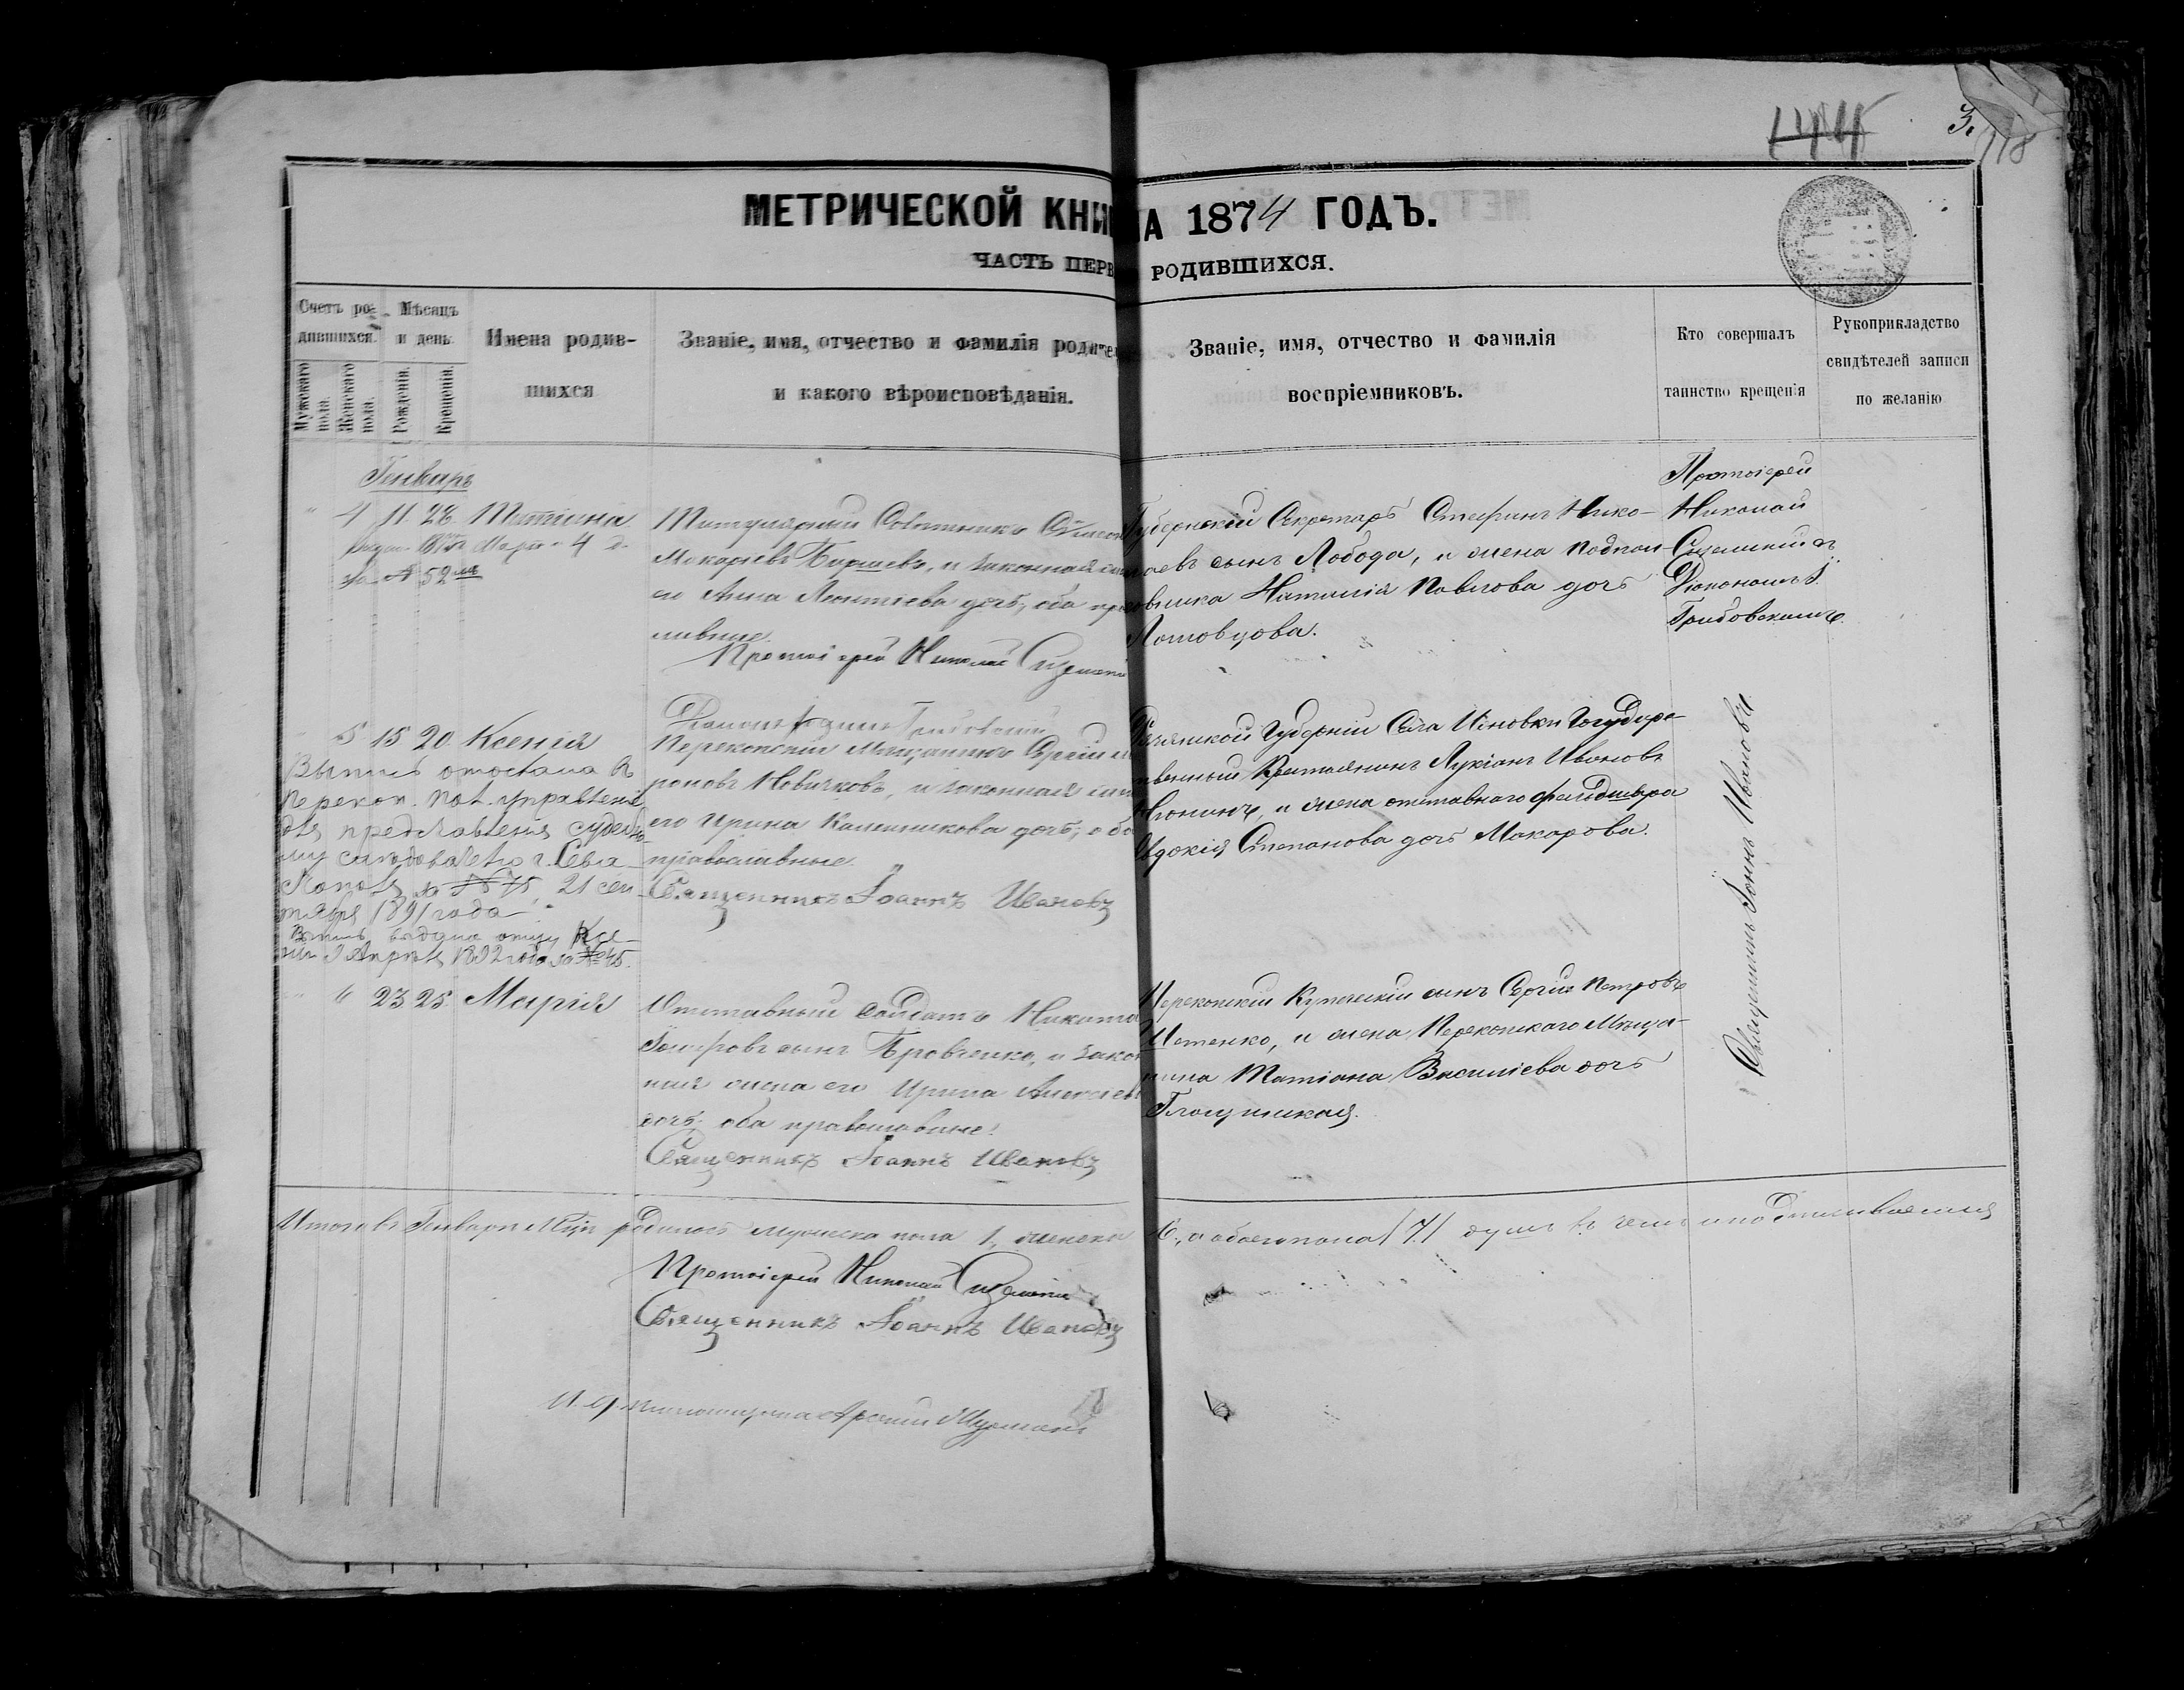 3.
118
МЕТРИЧЕСКОЙ КНИ НА 1874 ГОДЪ.
ЧАСТЬ ПЕРВ РОДИВШИХСЯ.
Счетъ ро-
дившихся.
Мужескаго пола.
Женскаго пола.
Мѣсяцъ
и день
Рожденія.
Крещенія.
Имена родив-
шихся
Званіе, имя, отчество и фамилія родите
и какого вѣроисповѣданія.
Званіе, имя, отчество и фамилія
воспріемниковъ.
Кто совершалъ
таинство крещенія
Рукоприкладство
свидѣтелей записи
по желанію
Генварь
4 11. 28. Татіана
Марта 4 д.
за № 52мъ
Титулярный Совѣтникъ
Макаріевъ и законная
его Анна Леонтіева дочь, оба пра
славные.
Протоіерей Николай
Губернскій Секретарь Стефанъ Нико-
лаевъ сынъ Лобода, и жена Подпол-
ковника Наталія Павлова дочь
Протоіерей
Николай
съ
Діакономъ І.
Грибовскимъ.
5 15 20 Ксенія
Выпись отослана въ
Перекоп. Пол. Управленіе
для представленія судебно-
му слѣдователю г. Сева
стополя за № 75, 21 сен
тября 1891 года
Выпись выдана отцу Ксе-
ніи 9 Апрѣля 1892 года за № 45.
Перекопскій Мѣщанинъ
роновъ Новичковъ, и законная жен
его Ирина Калинникова дочь, оба
православные.
Священникъ Іоаннъ Ивановъ
Губерніи Села Государ-
ственный Крестьянинъ Лукіанъ Ивановъ
и жена отставнаго фельдшера
Евдокія Степанова дочь Макарова.
Священникъ Іоаннъ Ивановъ
6 23 25. Марія
Отставный Солдатъ Никита
Іосифовъ сынъ Бровченко, и закон
ная жена его Ирина Алексѣев
дочь, оба православные.
Священникъ Іоаннъ Ивановъ
Перекопскій Купеческій сынъ Сергій Петровъ
и жена Перекопскаго Мѣща-
нина Татіана Василіева дочь
Итого въ Генварѣ М-цѣ родилось мужеска пола 1, женска 6, а обоего пола (7) душъ въ чемъ и подписываемся
Протоіерей Николай
Священникъ Іоаннъ Ивановъ
И. д. псаломщика Арсеній